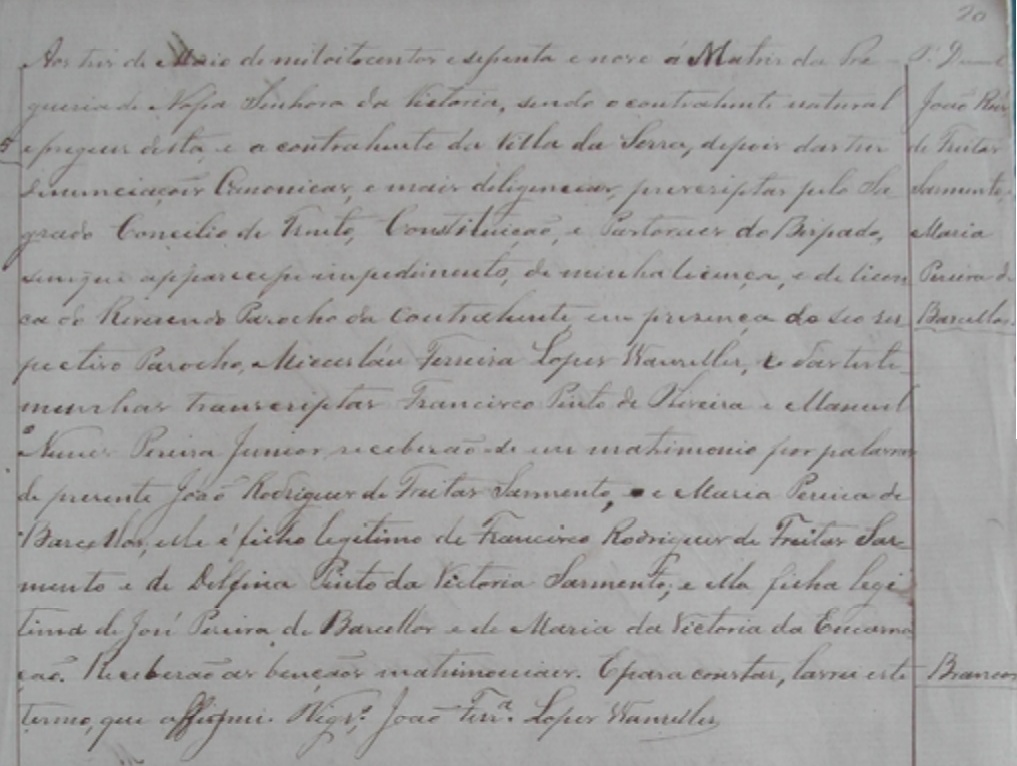 20
Aos tres de Maio de mil oito centos e sessenta e nove á Matriz da Fre-
guesia de Nossa Senhora da Victoria, sendo o contrahente natural
e freguez desta, e a contrahente da Villa da Serra, depois das tres
denunciaçoẽs Canonicas, e mais deligencias, prescriptas pelo Sa-
grado Concilio de Trento, Constituiçaõ, e Pastoraes do Bispado,
sem que apparecesse impedimento, de minha licença, e de licen-
ça do Reverendo Parocho da Contrahente em presença do seo res-
pectivo Parocho, Miceslau Ferreira Lopes Wanzeller, e das teste-
munhas transcriptas Francisco Pinto de Oliveira e Manoel
Nunes Pereira Junior, receberaõ-se em matrimonio por palavras
de presente Joaõ Rodrigues de Freitas Sarmento, e Maria Pereira de
Barcellos, elle é filho legitimo de Francisco Rodrigues de Freitas Sar-
mento e de Delfina Pinto da Victoria Sarmento, e ella filha legi-
tima de José Pereira de Barcellos e de Maria da Victoria da Encarna-
çaõ. Receberaõ as bençaõs matrimoniaes. E para constar, lavrei este
termo, que assignei. Vigr.º Joaõ Ferr.ª Lopes Wanzeller
5
João Roiz
de Freitas
Sarmento,
Maria
Pereira de
Barcellos.
Brancos